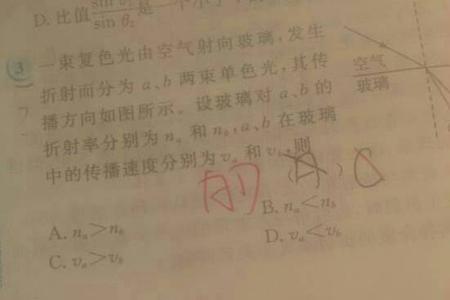 D. 比值 sin θ₁/sin θ₂ 是一个
3 一束复色光由空气射向玻璃,发生
折射而分为 a、b 两束单色光,其传
播方向如图所示。设玻璃对 a、b 的
折射率分别为 nₐ 和 n_b,a、b 在玻璃
中的传播速度分别为 vₐ 和 v_b,则
( A ) C
A. nₐ>n_b
B. nₐ<n_b
C. vₐ>v_b
D. vₐ<v_b
空气
玻璃